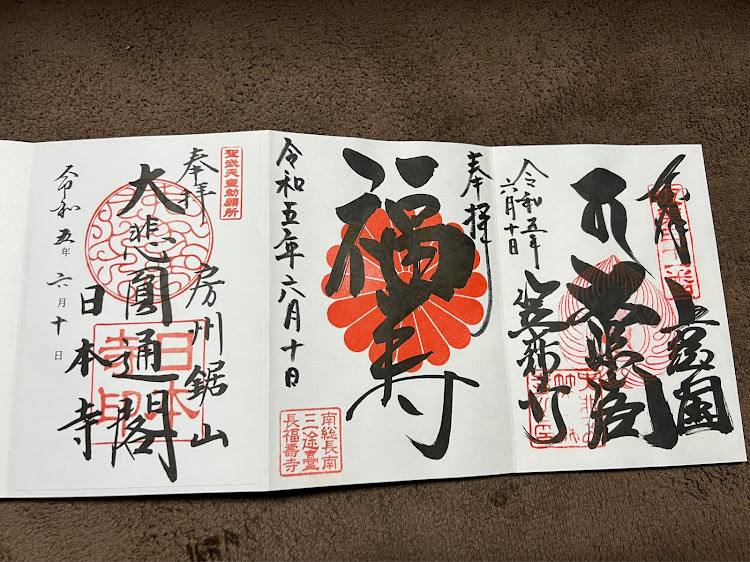 奉拝
上総国
大悲閣
笠森寺
令和五年
六月十日
奉拝
福寿
令和五年六月十日
南総長南
三途臺
長福壽寺
聖武天皇勅願所
奉拝
房州鋸山
大悲圓通閣
日本寺
日本
寺印
令和五年六月十日